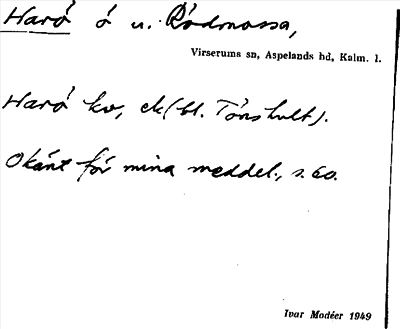 Harö ö u. Rödmossa,
Virserums sn, Aspelands hd, Kalm. l.
Harö kv, ek (bl. Tönshult).
Okänt för mina meddel., s. 60.
Ivar Modéer 1949